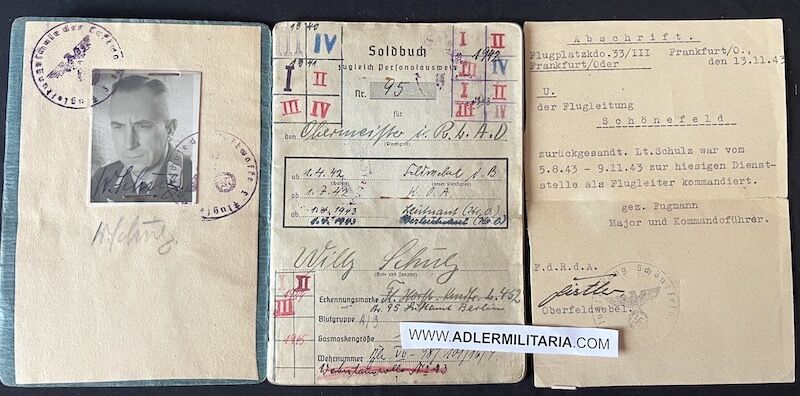 W. Schulz
W. Schulz
1940
IV
I
II
1941
I
II
III
IV
Soldbuch
zugleich Personalausweis
Nr. 95
für
den Obermeister i. R.L.A.D
(Dienstgrad)
I
II
1942
I
II
III
IV
1943
ab 1.4.42 Feldwebel d. B
(Datum) (neuer Dienstgrad)
ab 1.7.42 K.O.A
ab 1.4.1943 Leutnant (Kr.O.)
ab 1.4.1943
Willy Schulz
(Vor- und Zuname)
II
1944
III
1945
Erkennungsmarke Fl. Horst. Kmdtr. L. 452
Nr. 95 Luftamt Berlin
Blutgruppe A/B
Gasmaskengröße
Wehrnummer
WWW.ADLERMILITARIA.COM
Abschrift.
Flugplatzkdo.33/III Frankfurt/O.,
Frankfurt/Oder den 13.11.43
U.
der Flugleitung
Schönefeld
zurückgesandt. Lt.Schulz war vom
5.8.43 - 9.11.43 zur hiesigen Dienst-
stelle als Flugleiter kommandiert.
gez. Fugmann
Major und Kommandoführer.
F.d.R.d.A.
Oberfeldwebel.